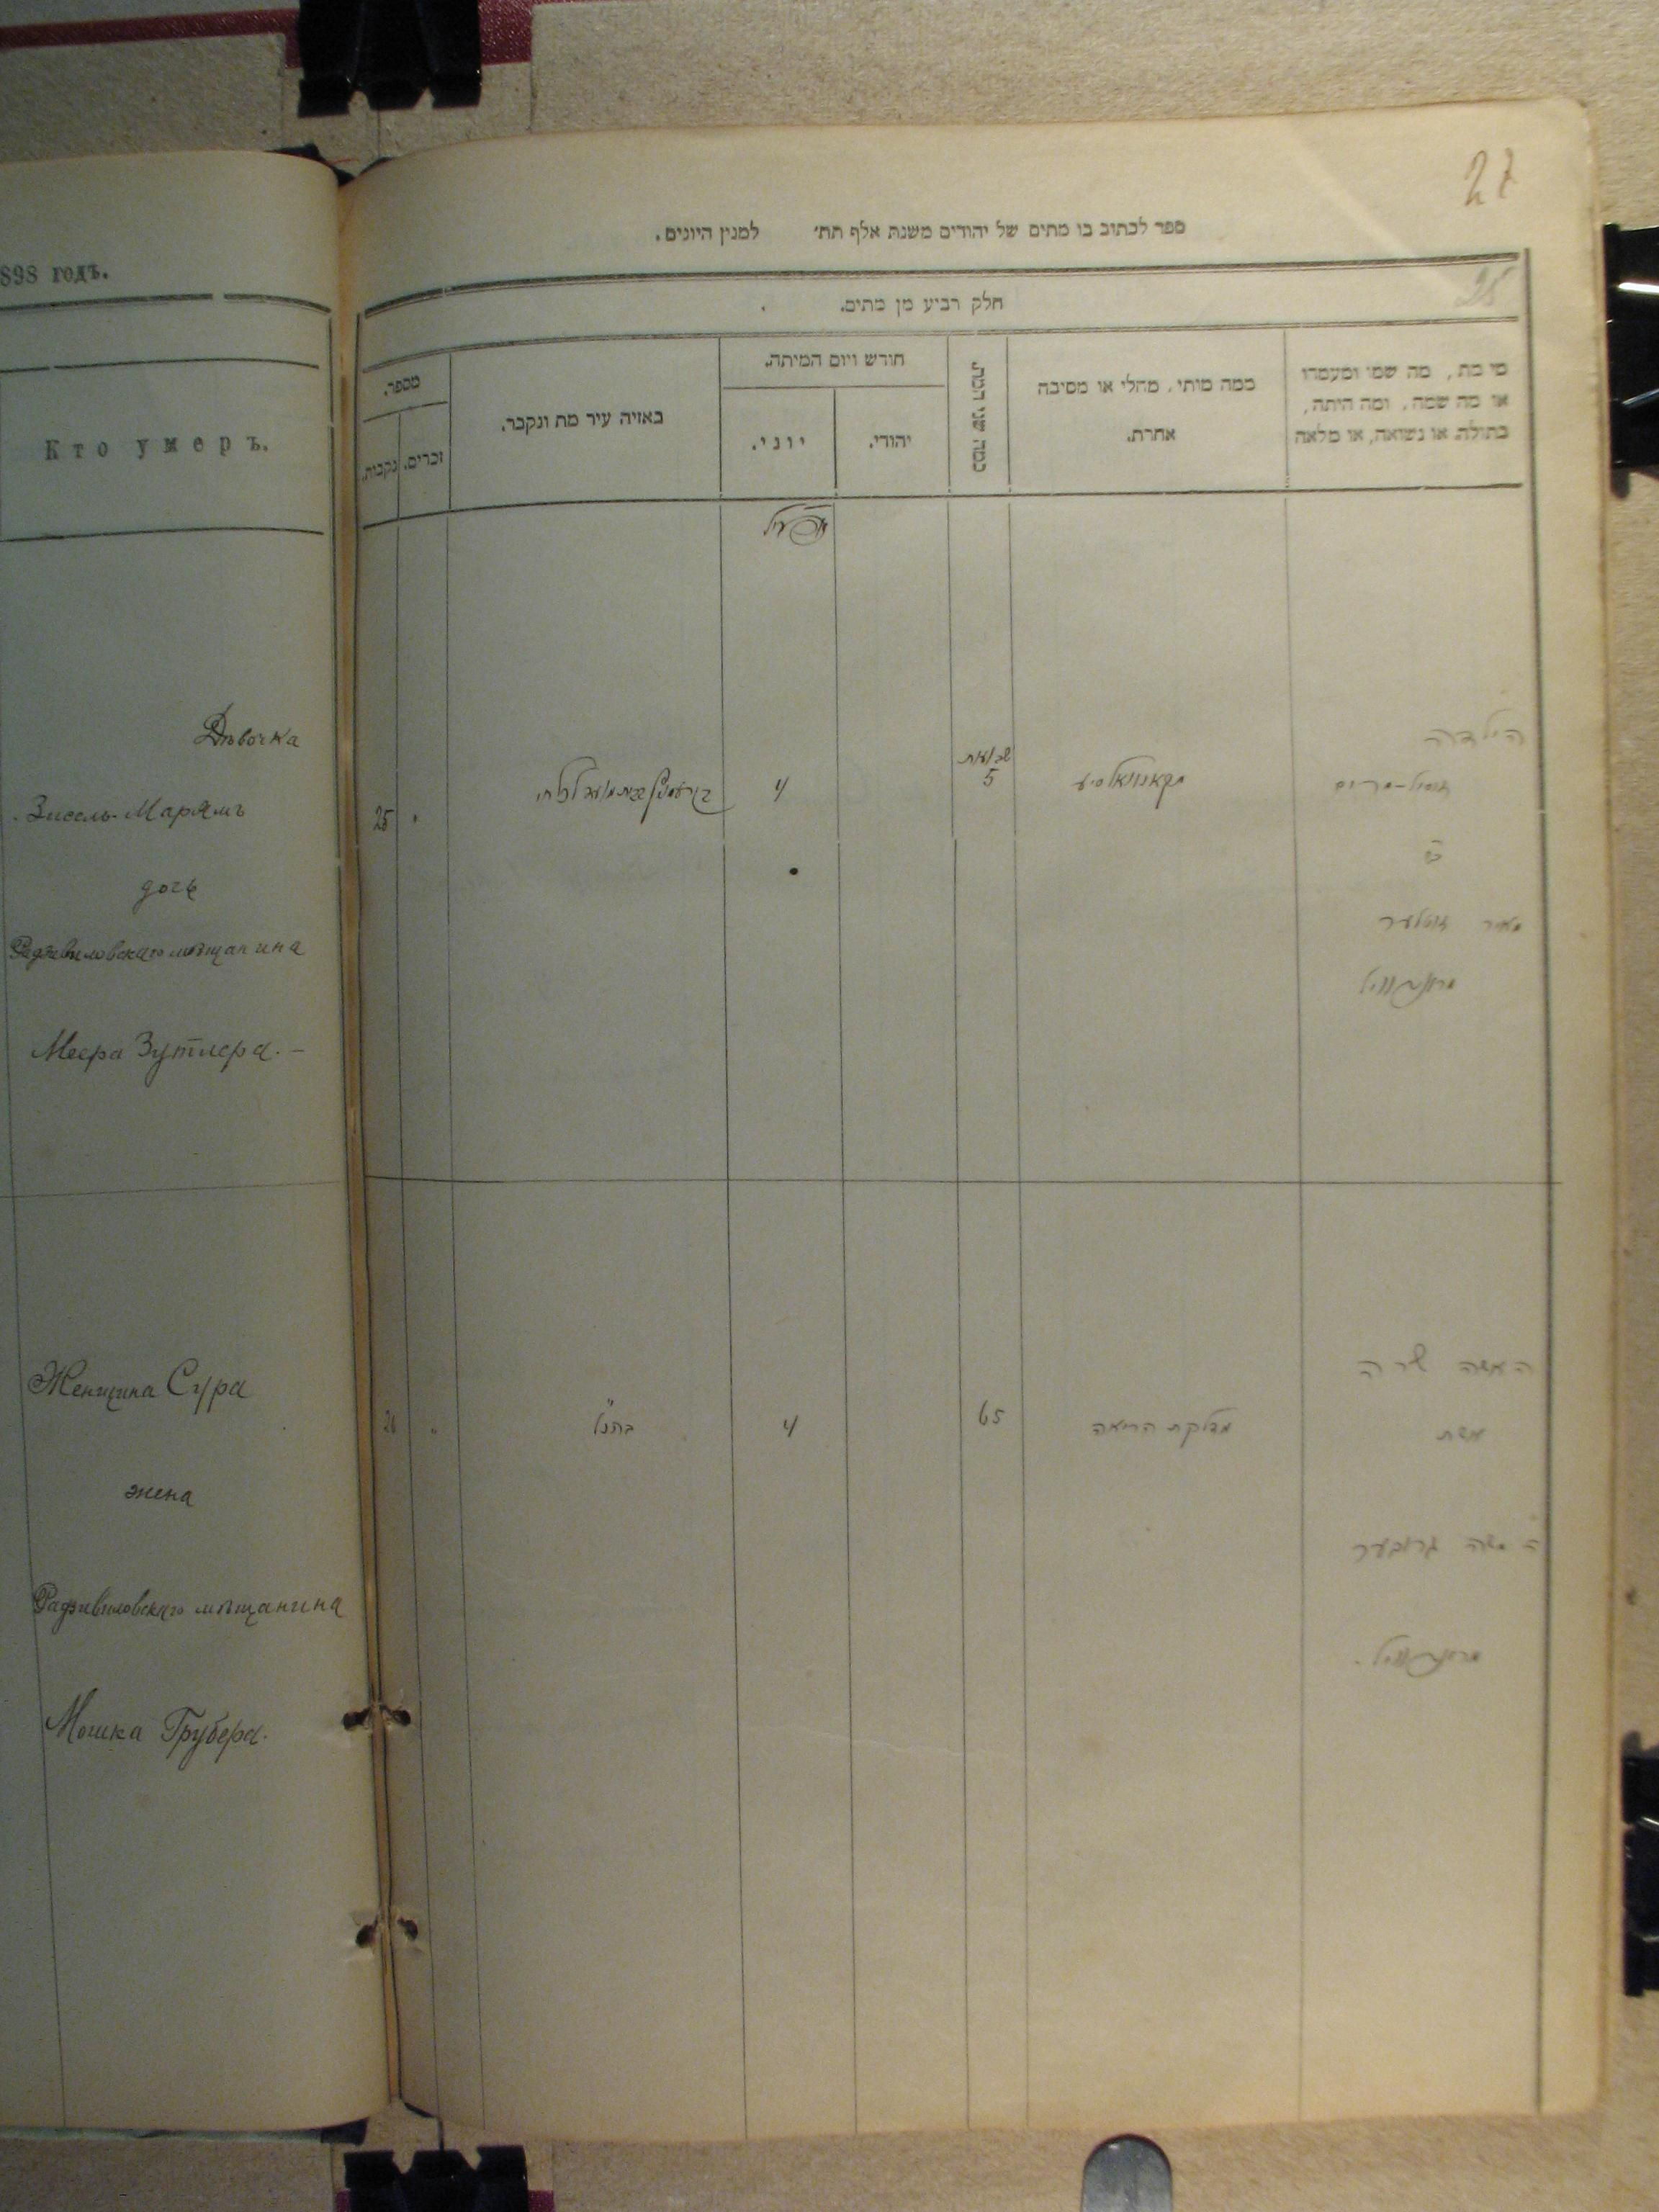 27
898 годъ.
Кто умеръ.
Дѣвочка
Зисель-Марямъ
дочь
Радзивиловскаго мѣщанина
Меера Зутлера. —
Женщина Сура
жена
Радзивиловскаго мѣщанина
Мошка Грубера.
ספר לכתוב בו מתים של יהודים משנת אלף תת׳ למנין היונים.
25
חלק רביע מן מתים.
מספר.
נקבות.
זכרים.
באיזה עיר מת ונקבר.
חודש ויום המיתה.
יוני.
יהודי.
כמה שני המת.
כמה מותי, מחלי או מסיבה
אחרת.
מי מת, מה שמו ומעמדו
או מה שמה, ומה היתה,
בתולה או נשואה, או מלאה
אפריל
25
4
שבועות
5
קאנוואלסיע
הילדה
זיסיל-מרים
בת
מאיר זוטלער
מראדזוויל
26
בהנ"ל
4
65
מדלקת הריאה
האשה שרה
אשת
ה משה גרובער
מראדזוויל.